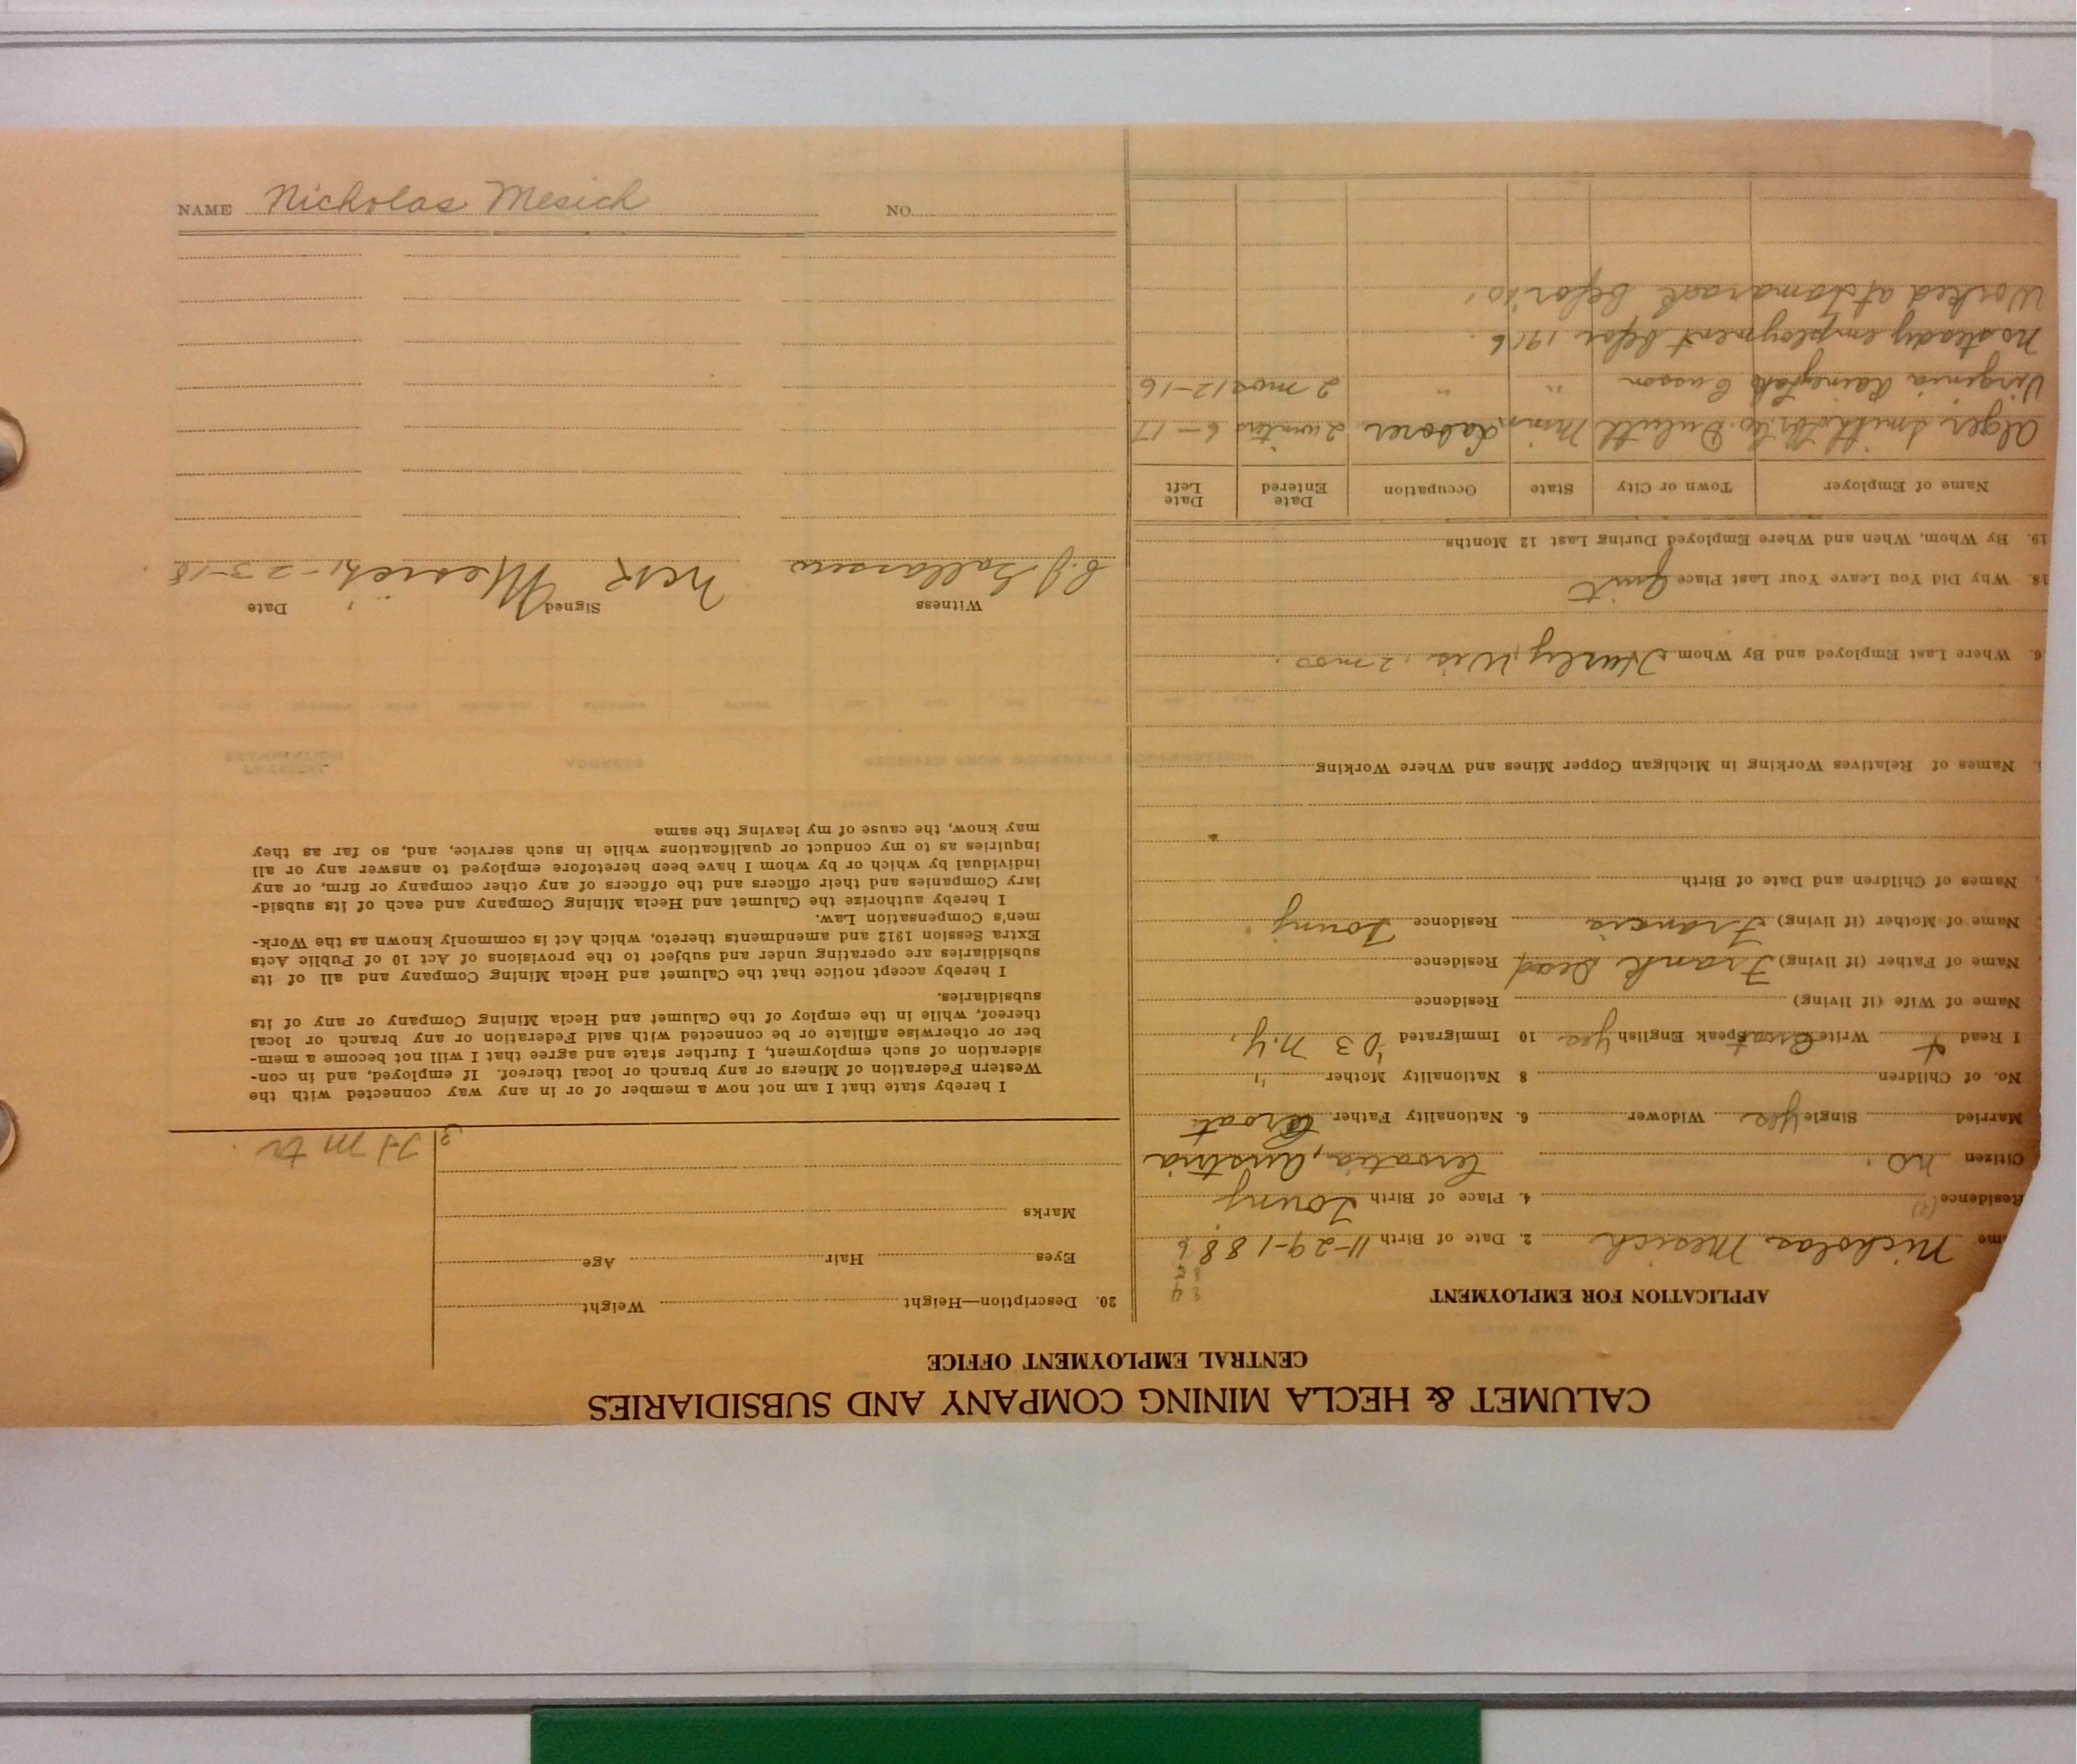 CALUMET & HECLA MINING COMPANY AND SUBSIDIARIES
CENTRAL EMPLOYMENT OFFICE
APPLICATION FOR EMPLOYMENT
ame Nicholas Mesich 2. Date of Birth 11-29-188
Residence 4. Place of Birth
Citizen no. Croatia, Austria
Married Single yes Widower 6. Nationality Father Croat
No. of Children 8 Nationality Mother "
I Read Write Croat Speak English yes 10 Immigrated '03 N.Y.
Name of Wife (if living) Residence
Name of Father (if living) Frank Dead Residence
Name of Mother (if living) Francis Residence
Names of Children and Date of Birth
Names of Relatives Working in Michigan Copper Mines and Where Working
6. Where Last Employed and By Whom Hurley, Wis. 2 mos.
18. Why Did You Leave Your Last Place Quit
19. By Whom, When and Where Employed During Last 12 Months
Name of Employer Town or City State Occupation Date Entered Date Left
Alger Smith Co. Duluth Minn Laborer 2 winters 6-17
Virginia Rainy Lake Cusson " " 2 mos 12-16
No steady employment befor 1916.
Worked at Tamarack befor
20. Description—Height Weight
Eyes Hair Age
Marks
3
I hereby state that I am not now a member of or in any way connected with the
Western Federation of Miners or any branch or local thereof. If employed, and in con-
sideration of such employment, I further state and agree that I will not become a mem-
ber or otherwise affiliate or be connected with said Federation or any branch or local
thereof, while in the employ of the Calumet and Hecla Mining Company or any of its
subsidiaries.
I hereby accept notice that the Calumet and Hecla Mining Company and all of its
subsidiaries are operating under and subject to the provisions of Act 10 of Public Acts
Extra Session 1912 and amendments thereto, which Act is commonly known as the Work-
men's Compensation Law.
I hereby authorize the Calumet and Hecla Mining Company and each of its subsid-
iary Companies and their officers and the officers of any other company or firm, or any
individual by which or by whom I have been heretofore employed to answer any or all
inquiries as to my conduct or qualifications while in such service, and, so far as they
may know, the cause of my leaving the same
Witness Signed Date
Mesich 1-23-18
NAME Nicholas Mesich NO.